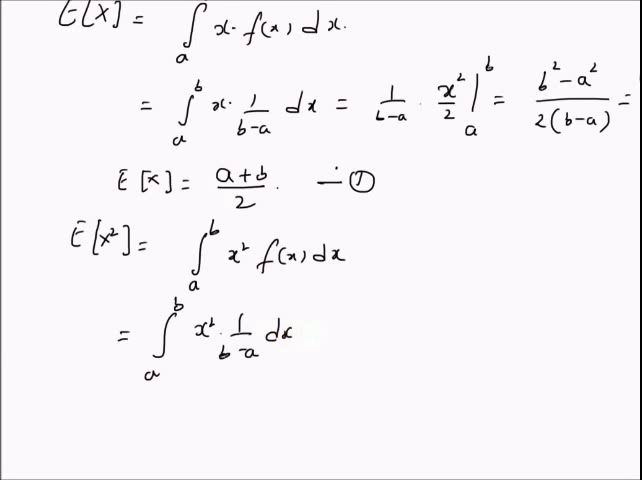 E[X] = ∫ₐ x. f(x) dx.
= ∫ₐᵇ x. 1/(b-a) dx = 1/(b-a) . x²/2 |ₐᵇ = (b² - a²)/(2(b-a)) =
E[x] = (a+b)/2. — ①
E[x²] = ∫ₐᵇ x² f(x) dx
= ∫ₐᵇ x². 1/(b-a) dx